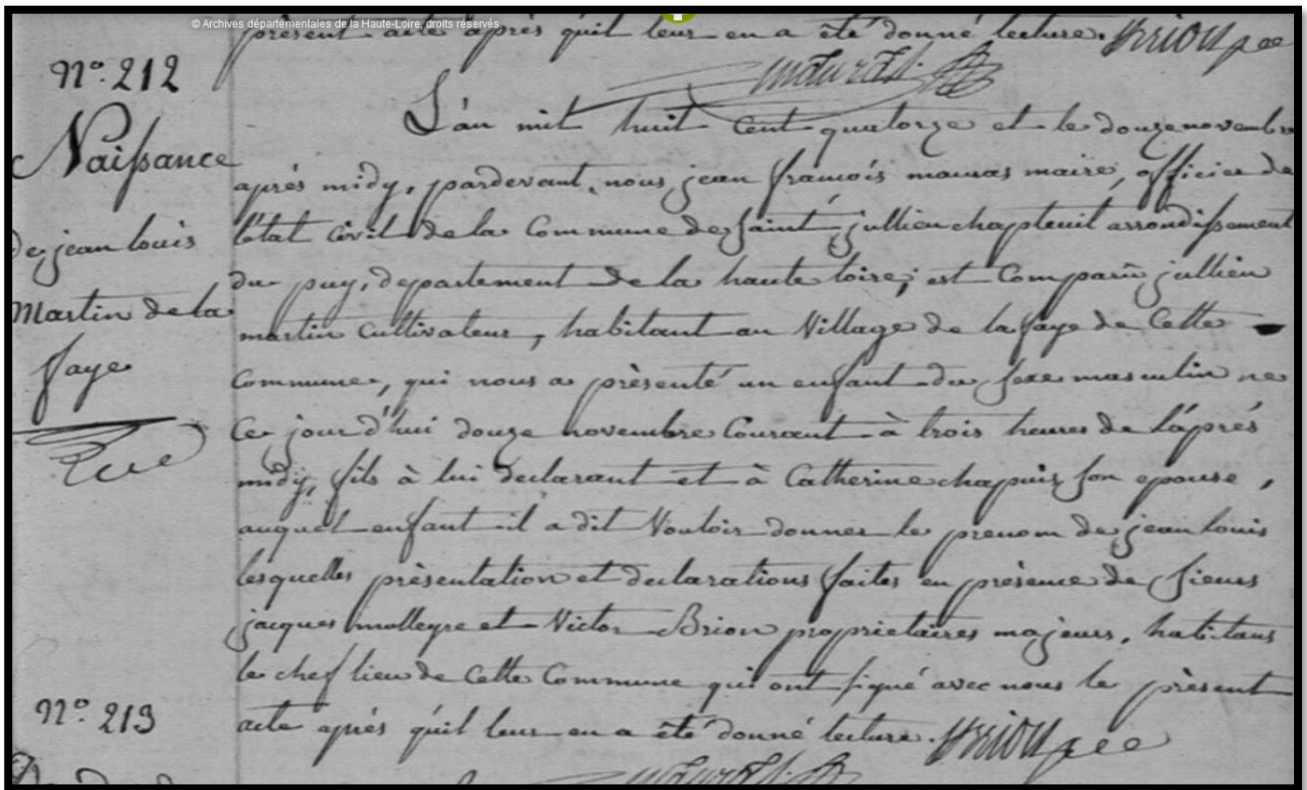 © Archives départementales de la Haute-Loire, droits réservés
présent acte après qu'il leur en a été donné lecture. Brion
N° 212
L'an mil huit cent quatorze et le douze novembre
Naissance
après midy, pardevant nous jean françois mauras maire, officier de
de jean louis
l'état civil de la Commune de Saint jullien chapteuil arrondissement
du puy, departement de la haute loire; est Comparu jullien
Martin de la
martin cultivateur, habitant au Village de la faye de Cette
faye
Commune, qui nous a présenté un enfant du sexe masculin ne
Ce jourd'hui douze novembre Courant à trois heures de l'après
midy, fils à lui declarant et à Catherine chapuis son epouse,
auquel enfant il a dit Vouloir donner le prenom de jean louis
lesquelles présentation et declarations faites en présence de sieurs
jacques molleyre et Victor Brion proprietaires majeurs, habitans
le chef lieu de Cette Commune qui ont signé avec nous le présent
N° 213
acte après qu'il leur en a été donné lecture. Brion